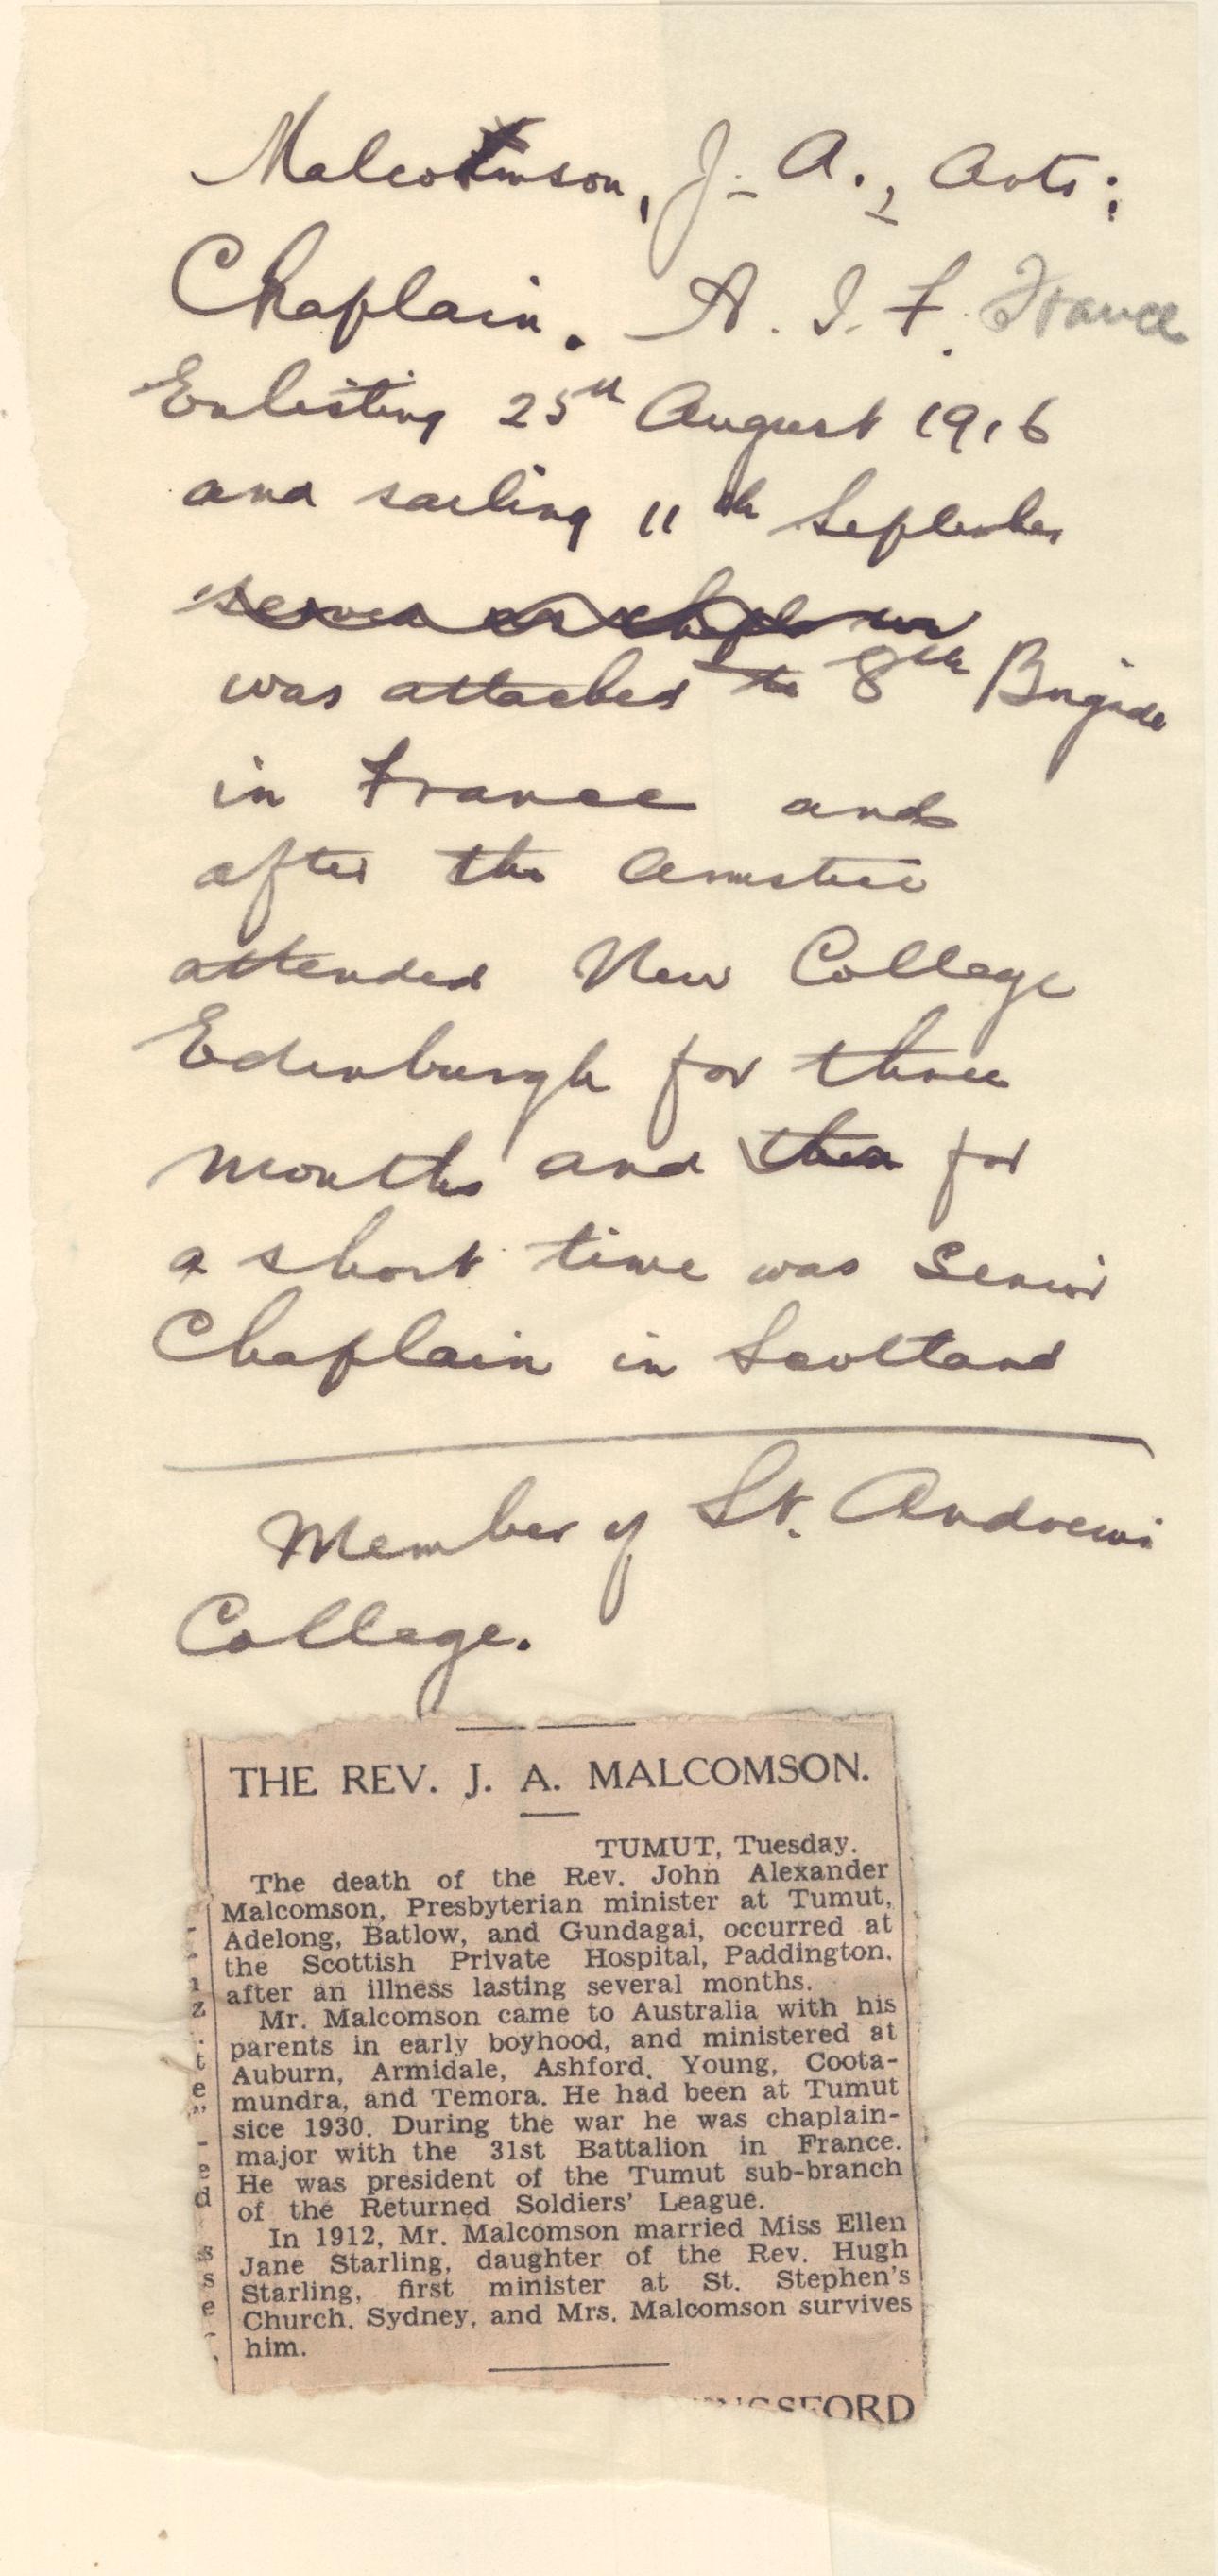 Malcomson, J. A., Arts;
Chaplain. A. I. F. France
Enlisting 25th August 1916
and sailing 11th September
served as chaplain
was attached to 8th Brigade
in France and
after the Armistice
attended New College
Edinburgh for three
months and then for
a short time was Senior
Chaplain in Scotland
Member of St. Andrews
College.
THE REV. J. A. MALCOMSON.
TUMUT, Tuesday.
The death of the Rev. John Alexander
Malcomson, Presbyterian minister at Tumut,
Adelong, Batlow, and Gundagai, occurred at
the Scottish Private Hospital, Paddington,
after an illness lasting several months.
Mr. Malcomson came to Australia with his
parents in early boyhood, and ministered at
Auburn, Armidale, Ashford, Young, Coota-
mundra, and Temora. He had been at Tumut
sice 1930. During the war he was chaplain-
major with the 31st Battalion in France.
He was president of the Tumut sub-branch
of the Returned Soldiers' League.
In 1912, Mr. Malcomson married Miss Ellen
Jane Starling, daughter of the Rev. Hugh
Starling, first minister at St. Stephen's
Church, Sydney, and Mrs. Malcomson survives
him.